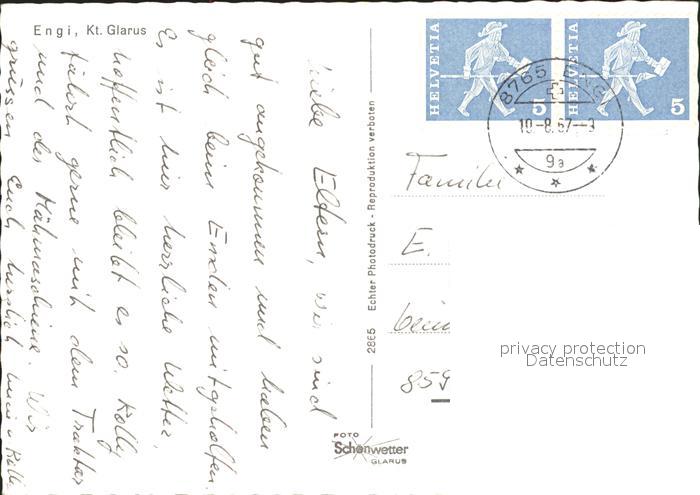 Engi, Kt. Glarus
Liebe Eltern, wir sind
gut angekommen und haben
gleich beim Emden mitgeholfen.
Es ist hier herrliches Wetter,
hoffentlich bleibt es so. Rolly
fährt gerne mit dem Traktor
und der Mähmaschine. Wir
grüssen Euch herzlich
2865 Echter Photodruck - Reproduktion verboten
FOTO
Schönwetter
GLARUS
HELVETIA 5
HELVETIA 5
8765 ENGI
9a
Familie
E.
beim
859
privacy protection
Datenschutz